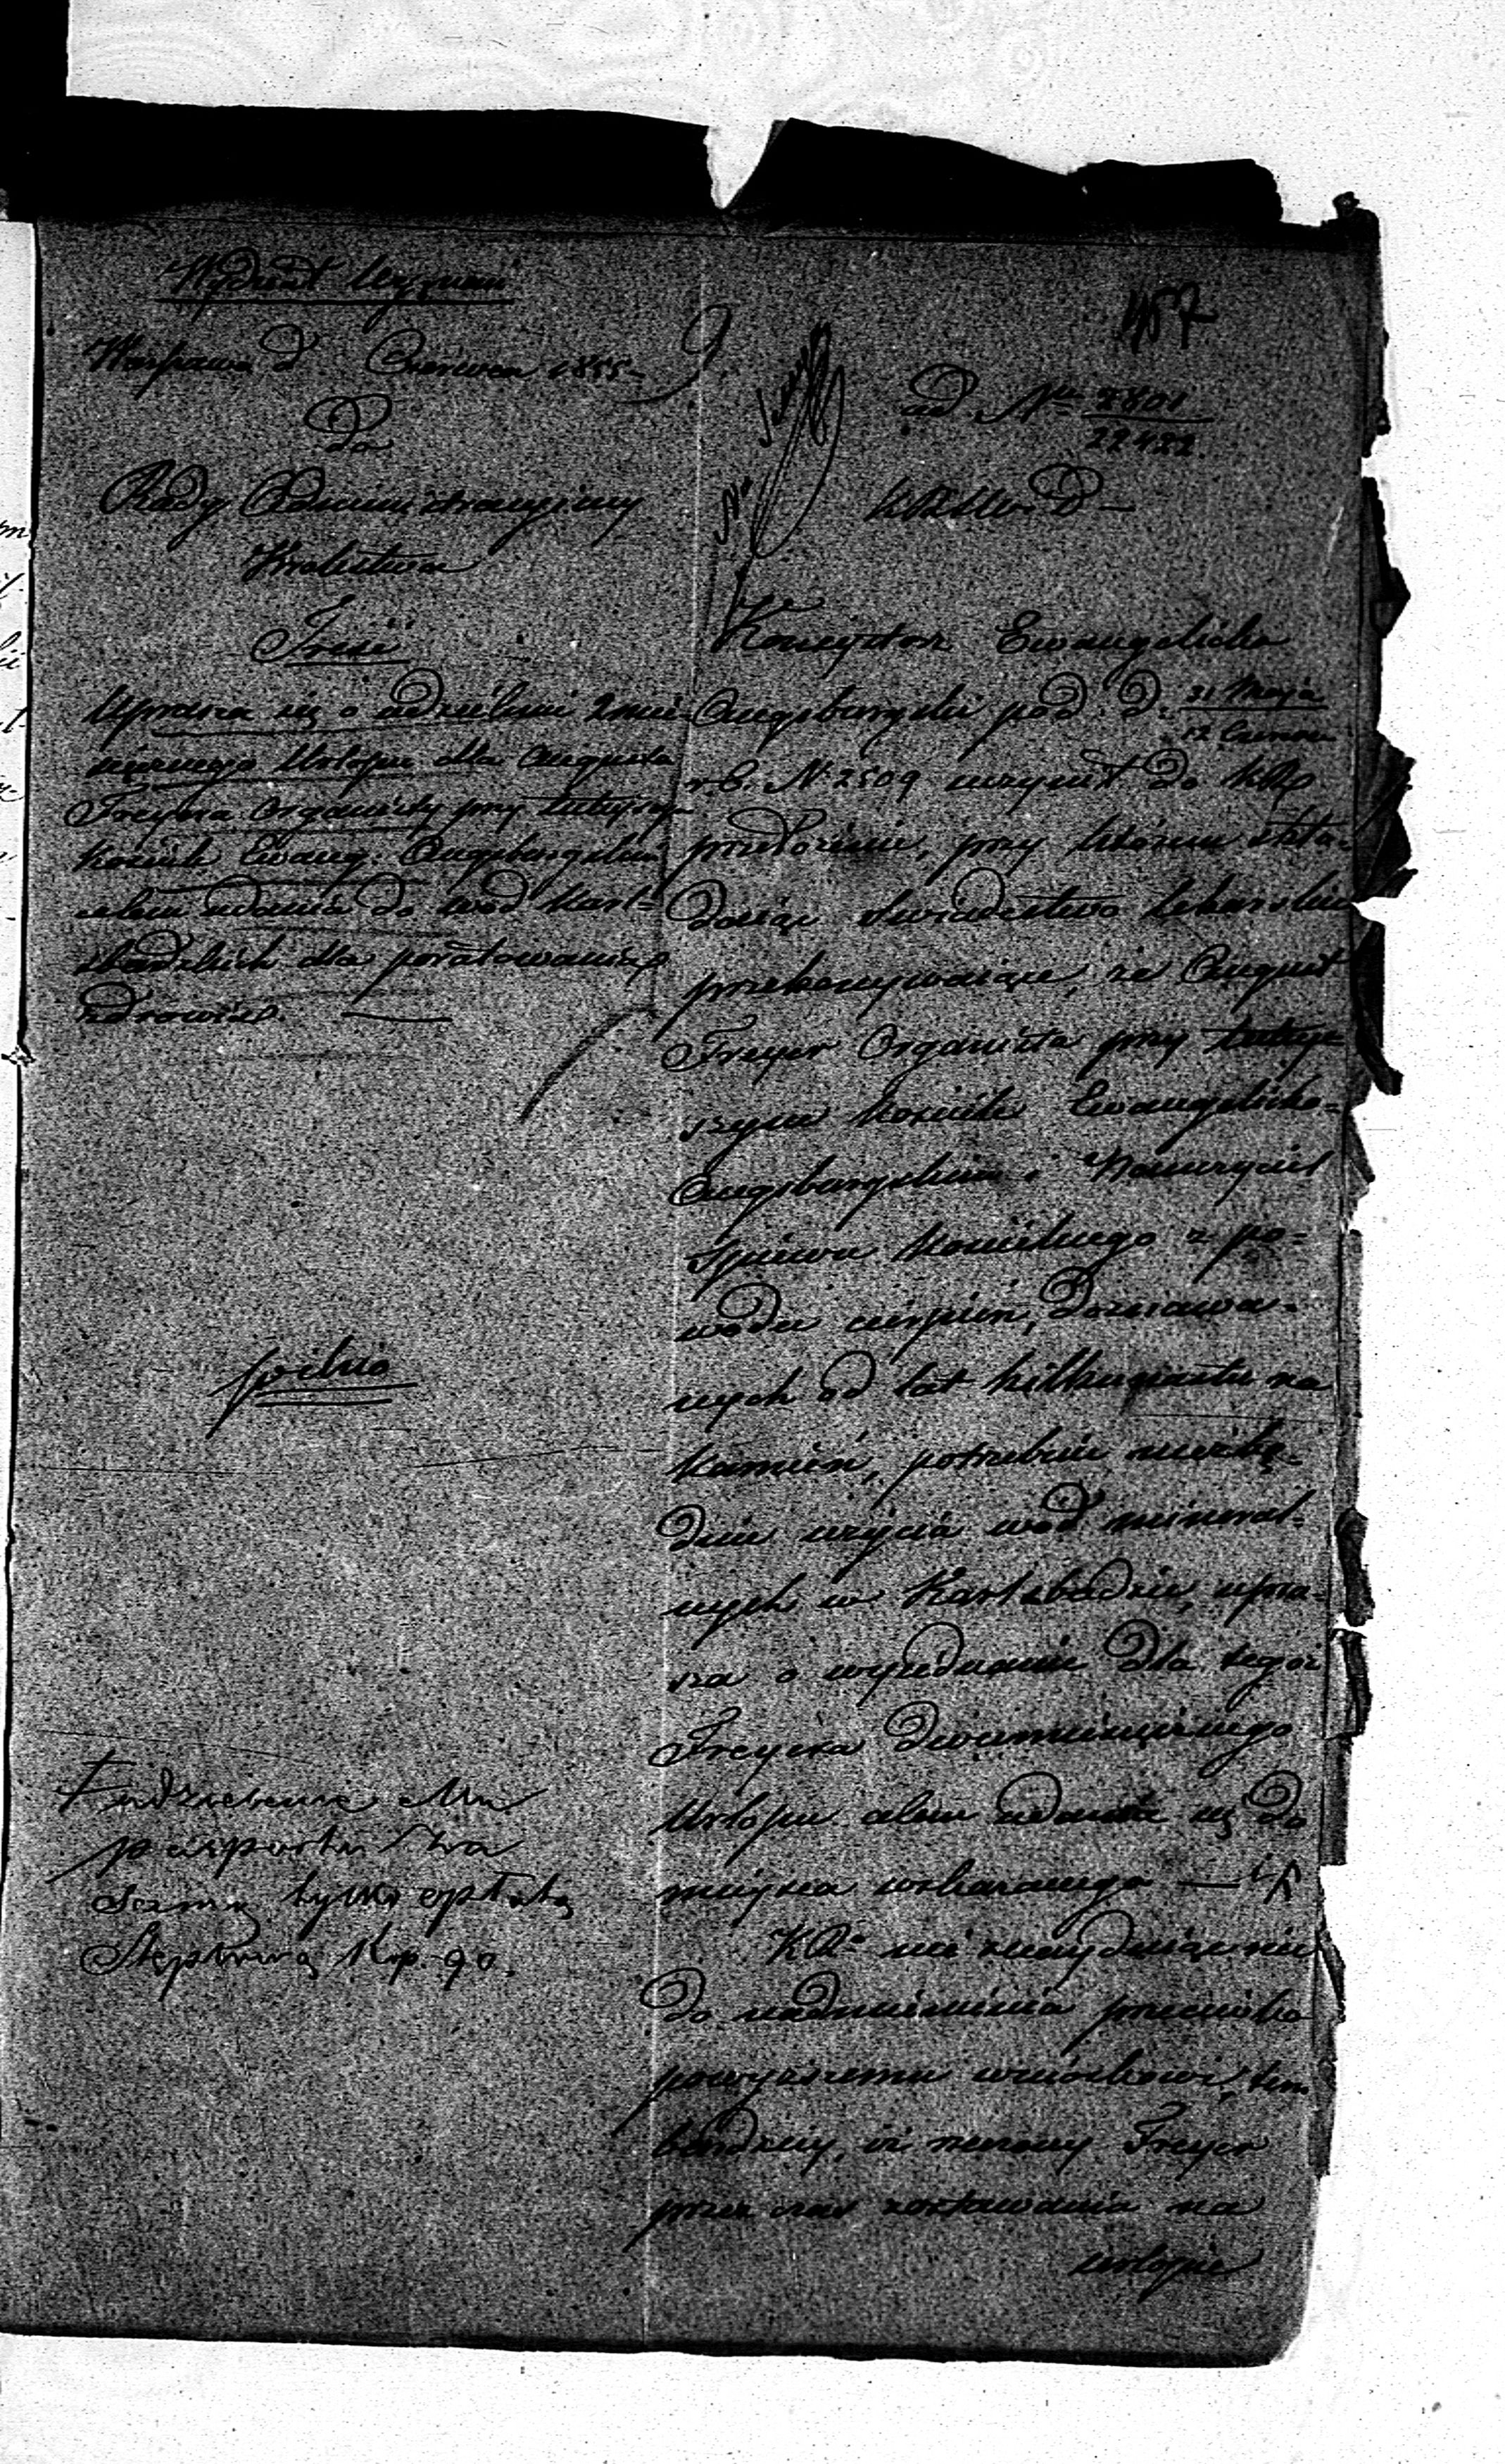 Wydział Wyznań
Warszawa d. Czerwca 1855
Do
Rady Administracyjnej
Królestwa
Treść
Uprasza się o udzielenie 2 mie-
sięcznego Urlopu dla Augusta
Freyera Organisty przy tutejszym
Kościele Ewang. Augsburgskim
celem udania do wód Karls-
badzkich dla poratowania
zdrowia.
pilno
udzielenie Mu
paszportu za
samą tylko opłatą
Stęplową Kop. 90.
457
ad Nr 2801
22422
Konsystorz Ewangelicko
Augsburgski pod d. 31 Maja
12 Czerwca
r. b. N. 2509 uczynił do KR
przedłożenie, przy którem skła-
dając świadectwo lekarskie
przekonywające, że August
Freyer Organista przy tutej-
szym Kościele Ewangelicko-
Augsburgskim i Nauczyciel
Śpiewu Kościelnego z po-
wodu cierpień, doznawa-
nych od lat kilkunastu na
kamień, potrzebuie niezbę-
dnie użycia wód mineral-
nych w Karlsbadzie, upra-
sza o wyjednanie dla tegoż
Freyera dwumiesięcznego
Urlopu celem udania się do
miejsca wskazanego
KR. nie znayduiąc nic
do nadmienienia przeciwko
powyższemu wnioskowi, tem
bardziey, iż rzeczony Freyer
przez czas zostawania na
urlopie